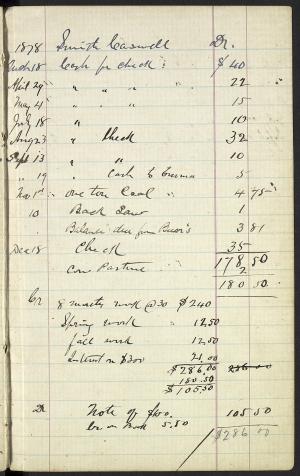 1878 Smith Caswell Dr.
18 Cash per check : $40
April 29 " " " " 22
May 4 " " " 15
July 18 " 10
Aug 23 " Check 32
Sept 13 " " 10
" 19 " Cash to 5
Nov 1st one ton Coal " 4 75
10 Back 1
" Balance due from 3 81
Dec 18 Check 35
178 50
Cow Pasture 2
180 50
Cr 8 months work @30 $240
Spring work " 12.50
fall work 12.50
Interest on $300 21.00
$286.00 286 00
180.50
$105.50
Dr Note of $100. 105 50
5.50
$286 00